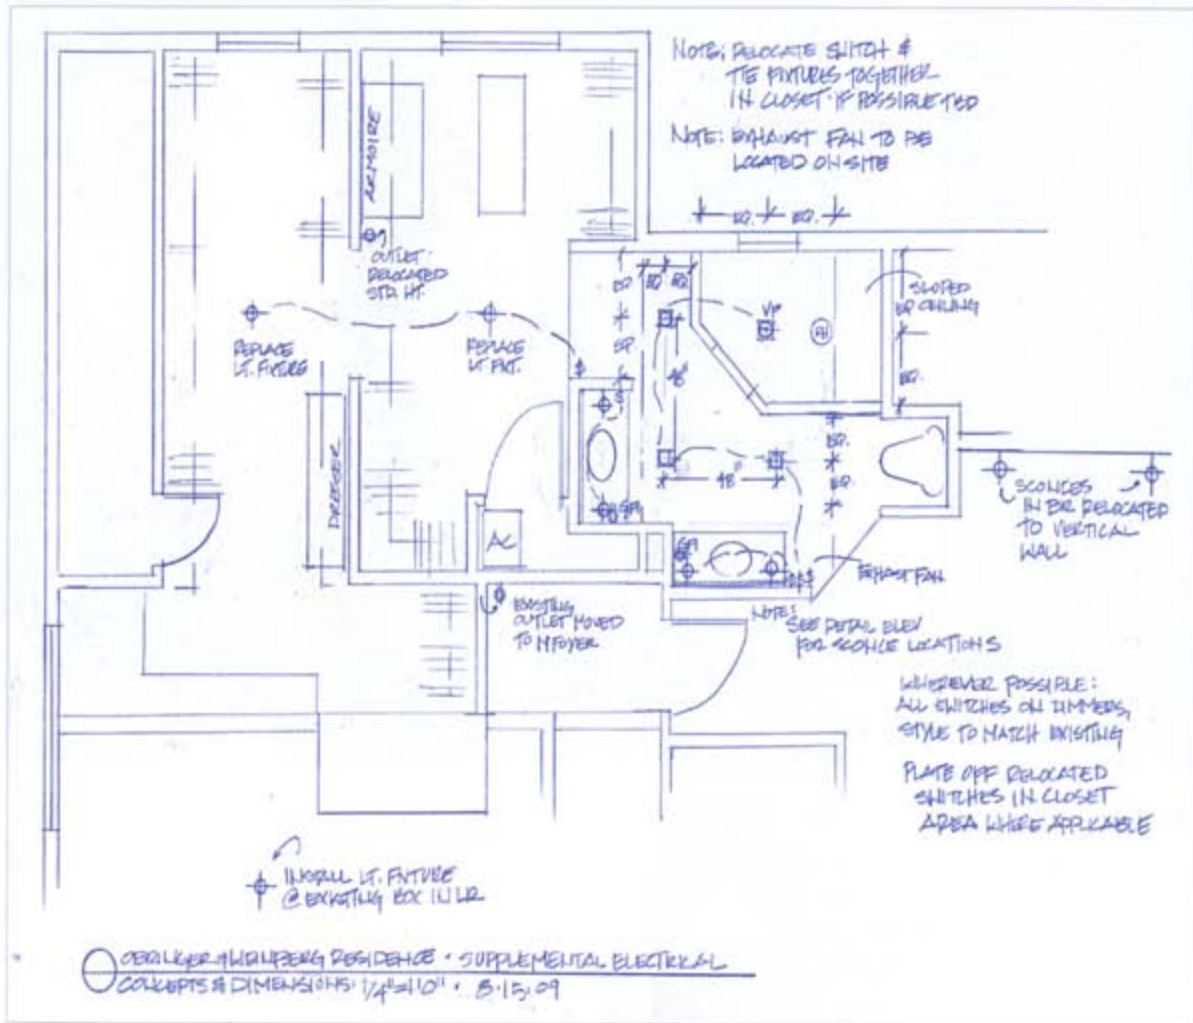 NOTE; RELOCATE SWITCH &
TIE FIXTURES TOGETHER
IN CLOSET IF POSSIBLE TBD
NOTE: EXHAUST FAN TO BE
LOCATED ON SITE
EQ. EQ.
ARMOIRE
OUTLET
RELOCATED
STD. HT.
EQ EQ
EQ
SLOPED
EQ CEILING
VP
REPLACE
LT. FIXTURE
REPLACE
LT. FXT.
$
EQ.
48"
EQ.
DRESSER
EQ.
48"
EQ.
GFI
SCONCES
IN BR RELOCATED
TO VERTICAL
WALL
AC
GFI
EXHAUST FAN
EXISTING
OUTLET MOVED
TO M FOYER
NOTE:
SEE DETAIL ELEV
FOR SCONCE LOCATIONS
WHEREVER POSSIBLE:
ALL SWITCHES ON DIMMERS,
STYLE TO MATCH EXISTING
PLATE OFF RELOCATED
SWITCHES IN CLOSET
AREA WHERE APPLICABLE
INSTALL LT. FIXTURE
@ EXISTING BOX IN LR
RESIDENCE • SUPPLEMENTAL ELECTRICAL
CONCEPTS & DIMENSIONS: 1/4"=1'0" • 8.15.09